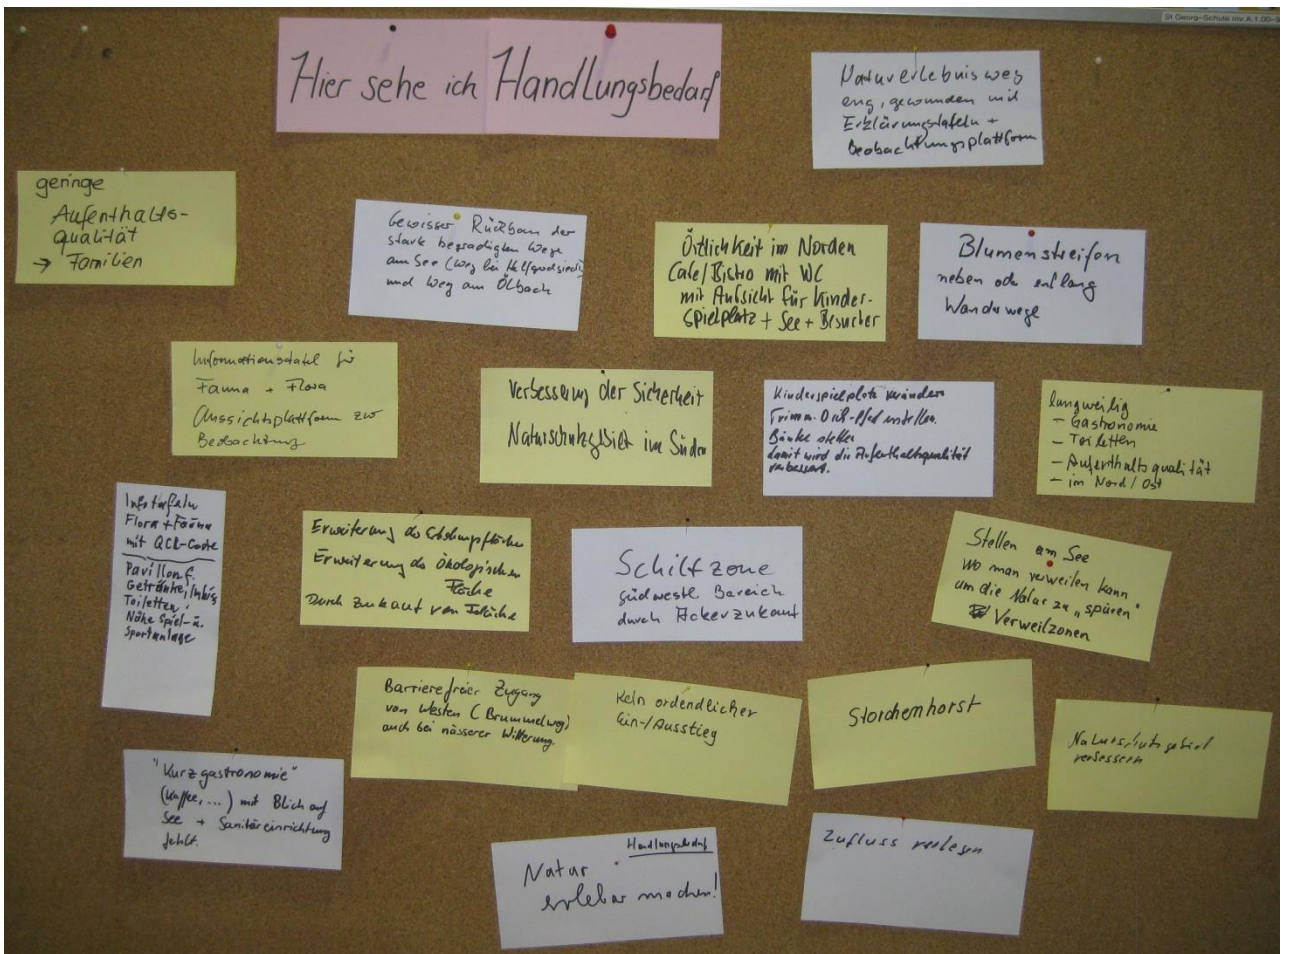 St Georg-Schule Inv.A.1.00-
Hier sehe ich Handlungsbedarf
Naturerlebnisweg
eng, gewunden mit
Erklärungstafeln +
Beobachtungsplattform
geringe
Aufenthalts-
qualität
→ Familien
Gewisser Rückbau der
stark begradigten Wege
am See (Weg bei
und Weg am Ölbach
Örtlichkeit im Norden
Cafe/Bistro mit WC
mit Aufsicht für Kinder-
spielplatz + See + Besucher
Blumenstreifen
neben oder entlang
Wanderwege
Informationstafel für
Fauna + Flora
Aussichtsplattform zur
Beobachtung
Verbesserung der Sicherheit
Naturschutzgebiet im Süden
Kinderspielplatz verändern
Trimm-Dich-Pfad erstellen.
Bänke stellen
damit wird die Aufenthaltsqualität
verbessert.
langweilig
- Gastronomie
- Toiletten
- Aufenthaltsqualität
- im Nord/Ost
Infotafeln
Flora + Fauna
mit QCR-Code
Pavillon f.
Getränke, Imbiß
Toiletten
Nähe Spiel- u.
Sportanlage
Erweiterung der
Erweiterung der ökologischen
Fläche
Durch Zukauf von Fläche
Schilfzone
südwestl Bereich
durch Ackerzukauf
Stellen am See
wo man verweilen kann
um die Natur zu „spüren"
Verweilzonen
Barrierefreier Zugang
von Westen (Brummelweg)
auch bei nässerer Witterung.
Kein ordendlicher
Ein-/Ausstieg
Storchenhorst
Naturschutzgebiet
verbessern
"Kurzgastronomie"
(Kaffee, ...) mit Blick auf
See + Sanitäreinrichtung
fehlt.
Handlungsbedarf
Natur
erlebbar machen!
Zufluss verlegen